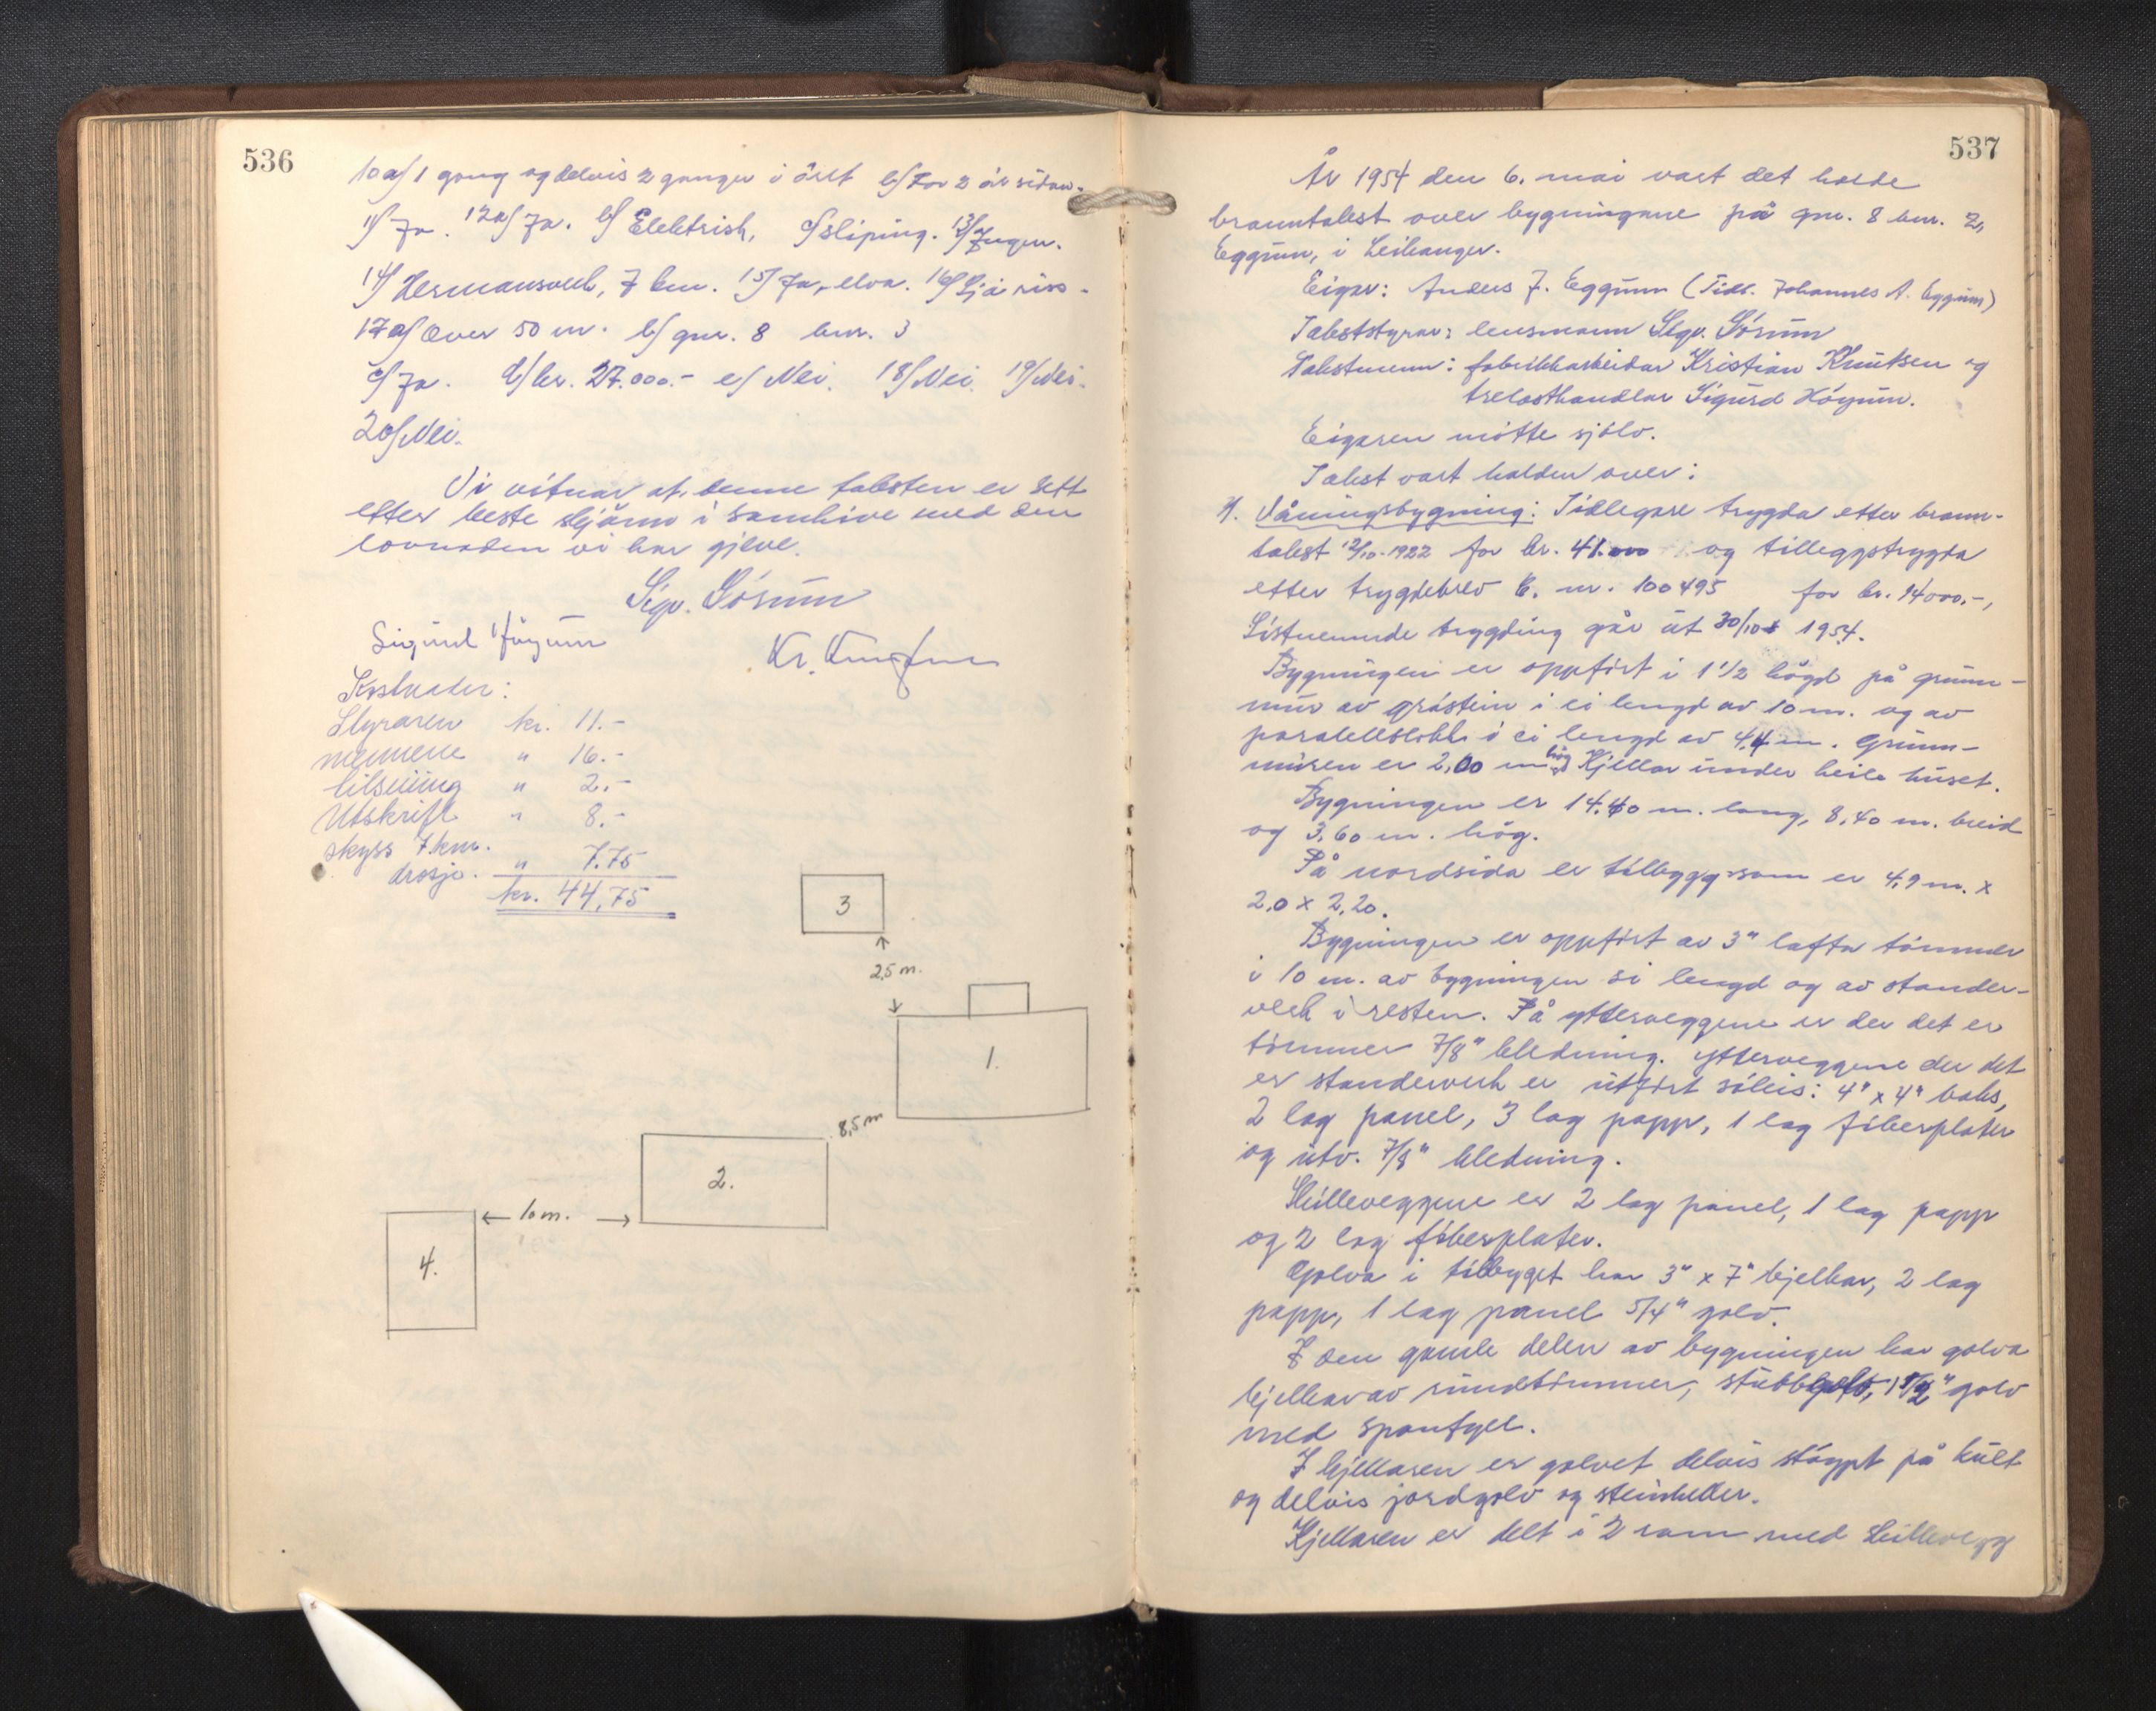 536
10 a/ 1 gong og delvis 2 gonger i året b/ For 2 år sidan.
11/ Ja. 12a/ Ja. b/ Elektrisk, c/ sliping. 13/ Ingen.
14/ Hermansverk, 7 km. 15/ Ja, elva. 16/ Sjå riss.
17 a/ Over 50 m. b/ gnr. 8 bnr. 3
c/ Ja. d/ kr. 27.000.- e/ Nei. 18/ Nei. 19/ Nei.
20/ Nei.
Vi vitnar at denne taksten er sett
etter beste skjönn i samhöve med den
lovnaden vi har gjeve.
Sigv. Sórum
Sigurd Höyum
Kr. Knutsen
Kostnader:
Styraren kr. 11.-
mennene " 16.-
tilseiing " 2.-
Utskrift " 8.-
skyss 7 km.
drosje. " 7.75
kr. 44,75
3
2,5 m.
1.
8,5 m
2.
10 m.
4.
537
År 1954 den 6. mai vart det halde
branntakst over bygningane på gnr. 8 bnr. 2,
Eggum, i Leikanger.
Eigar: Anders J. Eggum (Tidl. Johannes A. Eggum)
Takststyrar: lensmann Sigv. Sórum
Takstmenn: fabrikkarbeidar Kristian Knutsen og
trelasthandlar Sigurd Höyum.
Eigaren mótte sjölv.
Takst vart halden over:
1. Våningsbygning: Tidlegare trygda etter brann-
takst 12/10-1922 for kr. 41.000 og tilleggstrygda
etter trygdebrev E. nr. 100495 for kr. 14000.-,
Sistnemnde trygding går út 30/10 1954.
Bygningen er oppfórt i 1 1/2 högd på grunn-
mur av gråstein i ei lengd av 10 m. og av
parallellblokk i ei lengd av 4,4 m. Grunn-
muren er 2,00 m hög Kjellar under heile huset.
Bygningen er 14,40 m. lang, 8,40 m. breid
og 3,60 m. hög.
På nordsida er tilbygg som er 4,9 m. x
2,0 x 2,20.
Bygningen er oppfórt av 3" lafta tómmer
i 10 m. av bygningen si lengd og av stander-
verk i resten. På ytterveggene er der det er
tómmer 7/8" kledning. Ytterveggene der det
er standerverk er utfórt sóleis: 4" x 4" boks,
2 lag panel, 3 lag papp, 1 lag fiberplater
og utv. 7/8" kledning.
Skilleveggene er 2 lag panel, 1 lag papp
og 2 lag fiberplater.
Golva i tilbyget har 3" x 7" bjelkar, 2 lag
papp, 1 lag panel 5/4" golv.
I den gamle delen av bygningen har golva
bjelkar av rundtómmer, stubbgolv, 1 1/2" golv
med sponfyll.
I kjellaren er golvet delvis stóypt på kult
og delvis jordgolv og steinheller.
Kjellaren er delt i 2 rom med skillevegg